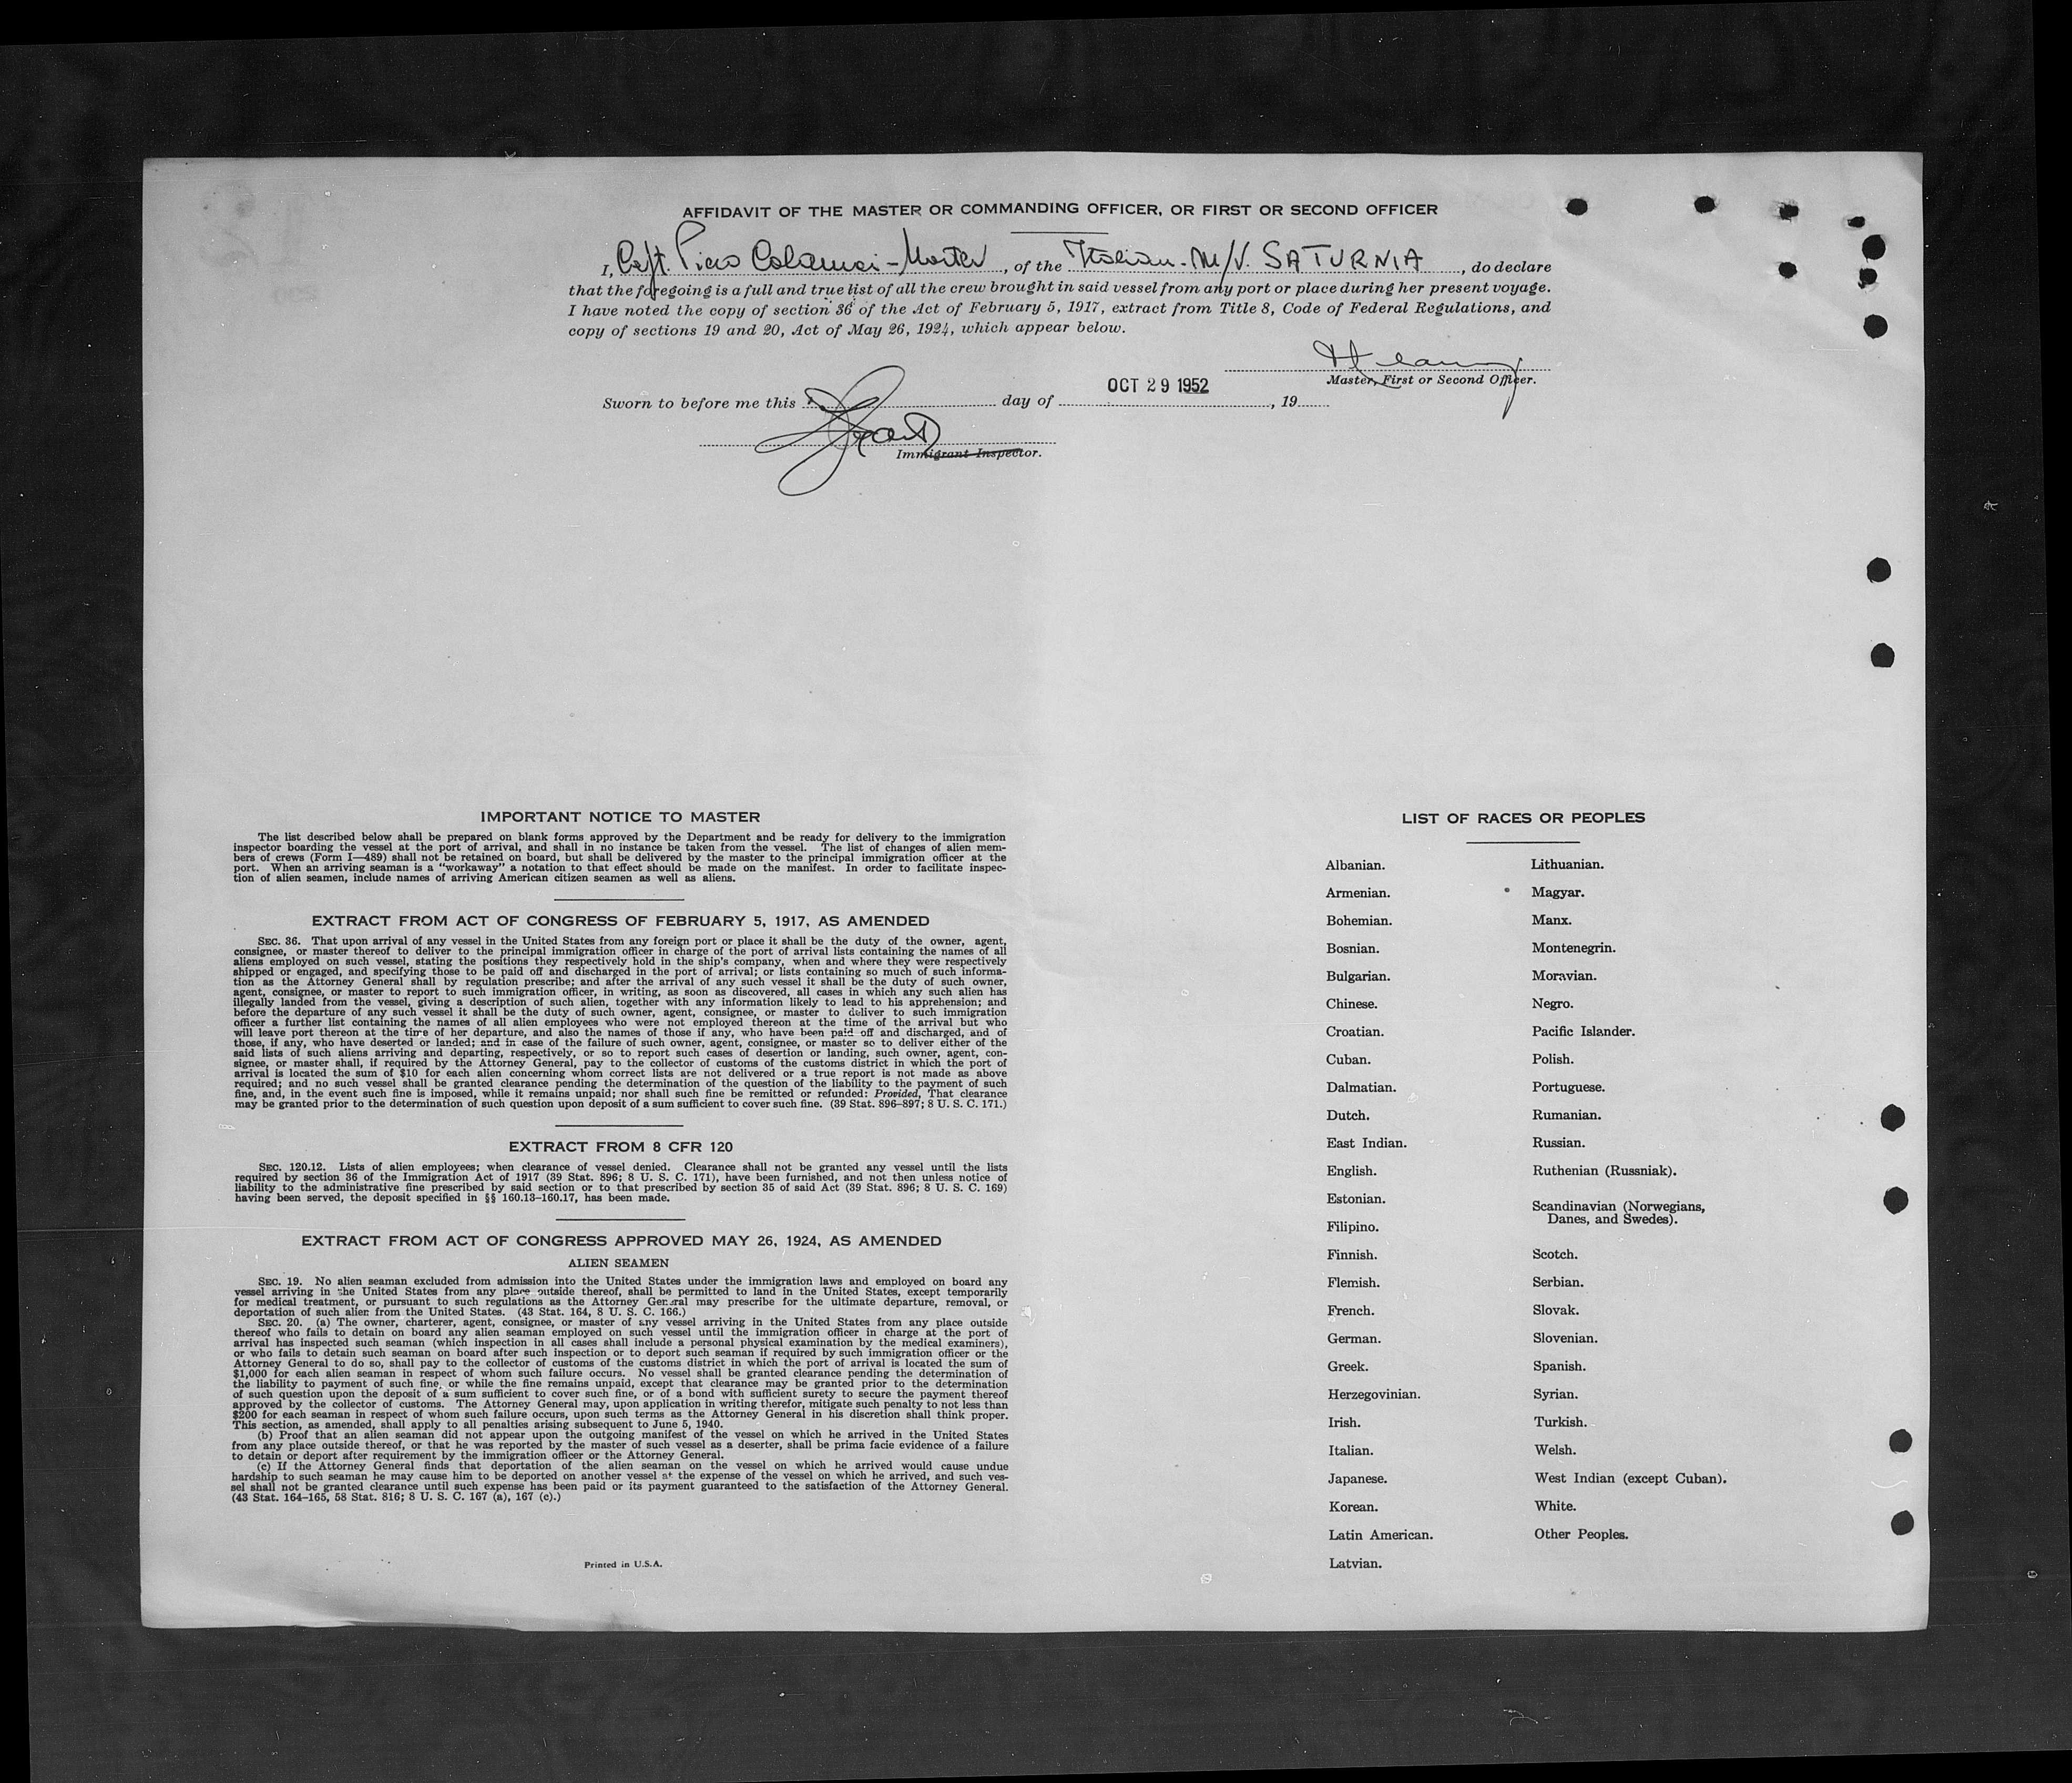 AFFIDAVIT OF THE MASTER OR COMMANDING OFFICER, OR FIRST OR SECOND OFFICER
I, Capt. Piero Calamai - Master, of the Italian - M/V. SATURNIA, do declare
that the foregoing is a full and true list of all the crew brought in said vessel from any port or place during her present voyage.
I have noted the copy of section 36 of the Act of February 5, 1917, extract from Title 8, Code of Federal Regulations, and
copy of sections 19 and 20, Act of May 26, 1924, which appear below.
Master, First or Second Officer.
Sworn to before me this day of OCT 29 1952, 19
Immigrant Inspector.
IMPORTANT NOTICE TO MASTER
The list described below shall be prepared on blank forms approved by the Department and be ready for delivery to the immigration
inspector boarding the vessel at the port of arrival, and shall in no instance be taken from the vessel. The list of changes of alien mem-
bers of crews (Form I—489) shall not be retained on board, but shall be delivered by the master to the principal immigration officer at the
port. When an arriving seaman is a "workaway" a notation to that effect should be made on the manifest. In order to facilitate inspec-
tion of alien seamen, include names of arriving American citizen seamen as well as aliens.
EXTRACT FROM ACT OF CONGRESS OF FEBRUARY 5, 1917, AS AMENDED
SEC. 36. That upon arrival of any vessel in the United States from any foreign port or place it shall be the duty of the owner, agent,
consignee, or master thereof to deliver to the principal immigration officer in charge of the port of arrival lists containing the names of all
aliens employed on such vessel, stating the positions they respectively hold in the ship's company, when and where they were respectively
shipped or engaged, and specifying those to be paid off and discharged in the port of arrival; or lists containing so much of such informa-
tion as the Attorney General shall by regulation prescribe; and after the arrival of any such vessel it shall be the duty of such owner,
agent, consignee, or master to report to such immigration officer, in writing, as soon as discovered, all cases in which any such alien has
illegally landed from the vessel, giving a description of such alien, together with any information likely to lead to his apprehension; and
before the departure of any such vessel it shall be the duty of such owner, agent, consignee, or master to deliver to such immigration
officer a further list containing the names of all alien employees who were not employed thereon at the time of the arrival but who
will leave port thereon at the time of her departure, and also the names of those if any, who have been paid off and discharged, and of
those, if any, who have deserted or landed; and in case of the failure of such owner, agent, consignee, or master so to deliver either of the
said lists of such aliens arriving and departing, respectively, or so to report such cases of desertion or landing, such owner, agent, con-
signee, or master shall, if required by the Attorney General, pay to the collector of customs of the customs district in which the port of
arrival is located the sum of $10 for each alien concerning whom correct lists are not delivered or a true report is not made as above
required; and no such vessel shall be granted clearance pending the determination of the question of the liability to the payment of such
fine, and, in the event such fine is imposed, while it remains unpaid; nor shall such fine be remitted or refunded: Provided, That clearance
may be granted prior to the determination of such question upon deposit of a sum sufficient to cover such fine. (39 Stat. 896-897; 8 U. S. C. 171.)
EXTRACT FROM 8 CFR 120
SEC. 120.12. Lists of alien employees; when clearance of vessel denied. Clearance shall not be granted any vessel until the lists
required by section 36 of the Immigration Act of 1917 (39 Stat. 896; 8 U. S. C. 171), have been furnished, and not then unless notice of
liability to the administrative fine prescribed by said section or to that prescribed by section 35 of said Act (39 Stat. 896; 8 U. S. C. 169)
having been served, the deposit specified in §§ 160.13-160.17, has been made.
EXTRACT FROM ACT OF CONGRESS APPROVED MAY 26, 1924, AS AMENDED
ALIEN SEAMEN
SEC. 19. No alien seaman excluded from admission into the United States under the immigration laws and employed on board any
vessel arriving in the United States from any place outside thereof, shall be permitted to land in the United States, except temporarily
for medical treatment, or pursuant to such regulations as the Attorney General may prescribe for the ultimate departure, removal, or
deportation of such alien from the United States. (43 Stat. 164, 8 U. S. C. 166.)
SEC. 20. (a) The owner, charterer, agent, consignee, or master of any vessel arriving in the United States from any place outside
thereof who fails to detain on board any alien seaman employed on such vessel until the immigration officer in charge at the port of
arrival has inspected such seaman (which inspection in all cases shall include a personal physical examination by the medical examiners),
or who fails to detain such seaman on board after such inspection or to deport such seaman if required by such immigration officer or the
Attorney General to do so, shall pay to the collector of customs of the customs district in which the port of arrival is located the sum of
$1,000 for each alien seaman in respect of whom such failure occurs. No vessel shall be granted clearance pending the determination of
the liability to payment of such fine, or while the fine remains unpaid, except that clearance may be granted prior to the determination
of such question upon the deposit of a sum sufficient to cover such fine, or of a bond with sufficient surety to secure the payment thereof
approved by the collector of customs. The Attorney General may, upon application in writing therefor, mitigate such penalty to not less than
$200 for each seaman in respect of whom such failure occurs, upon such terms as the Attorney General in his discretion shall think proper.
This section, as amended, shall apply to all penalties arising subsequent to June 5, 1940.
(b) Proof that an alien seaman did not appear upon the outgoing manifest of the vessel on which he arrived in the United States
from any place outside thereof, or that he was reported by the master of such vessel as a deserter, shall be prima facie evidence of a failure
to detain or deport after requirement by the immigration officer or the Attorney General.
(c) If the Attorney General finds that deportation of the alien seaman on the vessel on which he arrived would cause undue
hardship to such seaman he may cause him to be deported on another vessel at the expense of the vessel on which he arrived, and such ves-
sel shall not be granted clearance until such expense has been paid or its payment guaranteed to the satisfaction of the Attorney General.
(43 Stat. 164-165, 58 Stat. 816; 8 U. S. C. 167 (a), 167 (c).)
Printed in U.S.A.
LIST OF RACES OR PEOPLES
Albanian.
Armenian.
Bohemian.
Bosnian.
Bulgarian.
Chinese.
Croatian.
Cuban.
Dalmatian.
Dutch.
East Indian.
English.
Estonian.
Filipino.
Finnish.
Flemish.
French.
German.
Greek.
Herzegovinian.
Irish.
Italian.
Japanese.
Korean.
Latin American.
Latvian.
Lithuanian.
Magyar.
Manx.
Montenegrin.
Moravian.
Negro.
Pacific Islander.
Polish.
Portuguese.
Rumanian.
Russian.
Ruthenian (Russniak).
Scandinavian (Norwegians,
Danes, and Swedes).
Scotch.
Serbian.
Slovak.
Slovenian.
Spanish.
Syrian.
Turkish.
Welsh.
West Indian (except Cuban).
White.
Other Peoples.